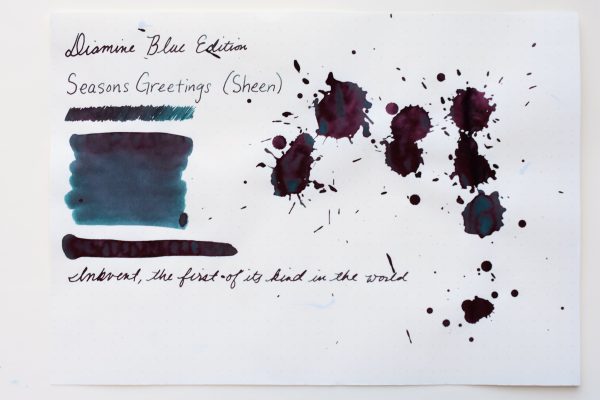 Diamine Blue Edition
Seasons Greetings (Sheen)
Inkvent, the first of its kind in the world